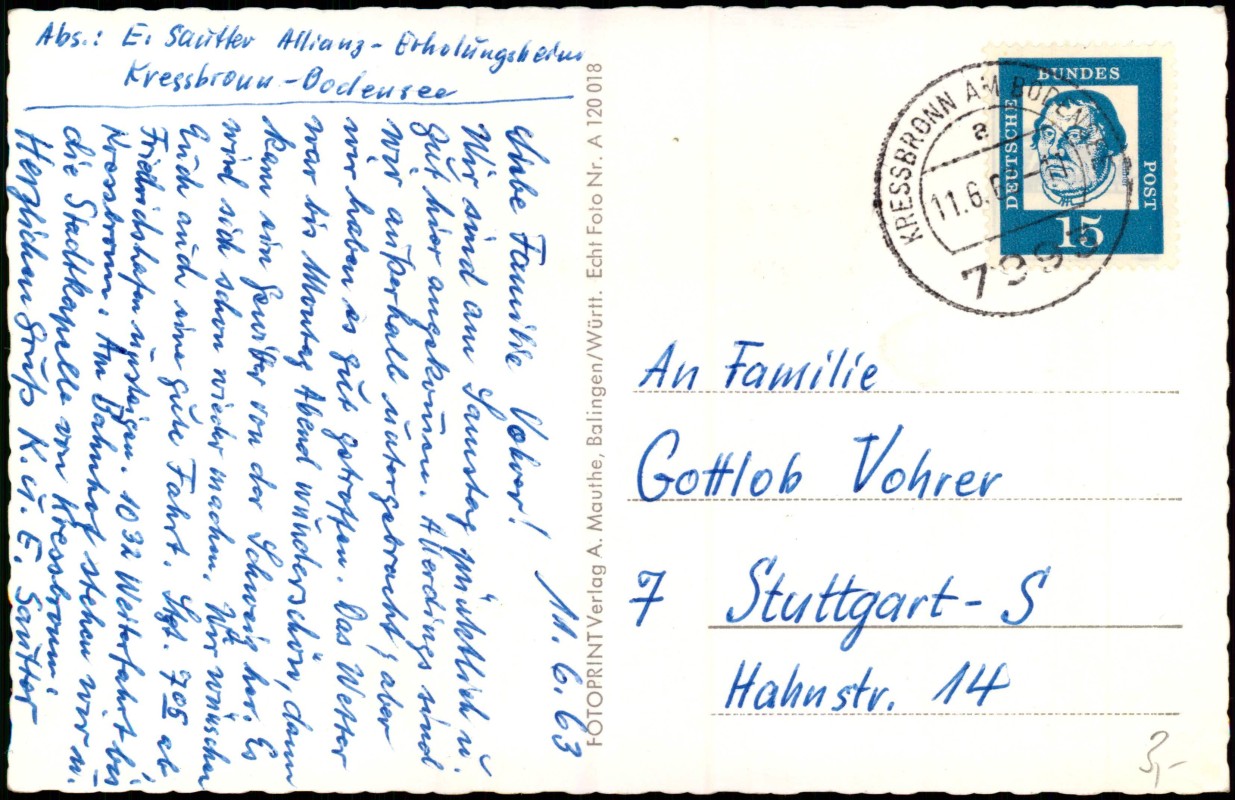 Abs.: E. Sautter Allianz-Erholungsheim
Kressbronn-Bodensee
11.6.63
Liebe Familie Vohrer!
Wir sind am Samstag pünktlich u.
gut hier angekommen. Allerdings sind
wir außerhalb untergebracht, aber
wir haben es gut getroffen. Das Wetter
war bis Montag Abend wunderschön, dann
kam ein Gewitter von der Schweiz her. Es
wird sich schon wieder machen. Wir wünschen
Euch auch eine gute Fahrt. 705 ab
Friedrichshafen umsteigen. 1032 Weiterfahrt bis
Kressbronn. Am Bahnhof stehen wir u.
die Stadtkapelle von Kressbronn.
Herzlichen Gruß K. u. E. Sautter
FOTOPRINT Verlag A. Mauthe, Balingen/Württ. Echt Foto Nr. A 120 018
KRESSBRONN AM
a
11.6.
799
DEUTSCHE
BUNDES
POST
15
An Familie
Gottlob Vohrer
7 Stuttgart-S
Hahnstr. 14
3,-